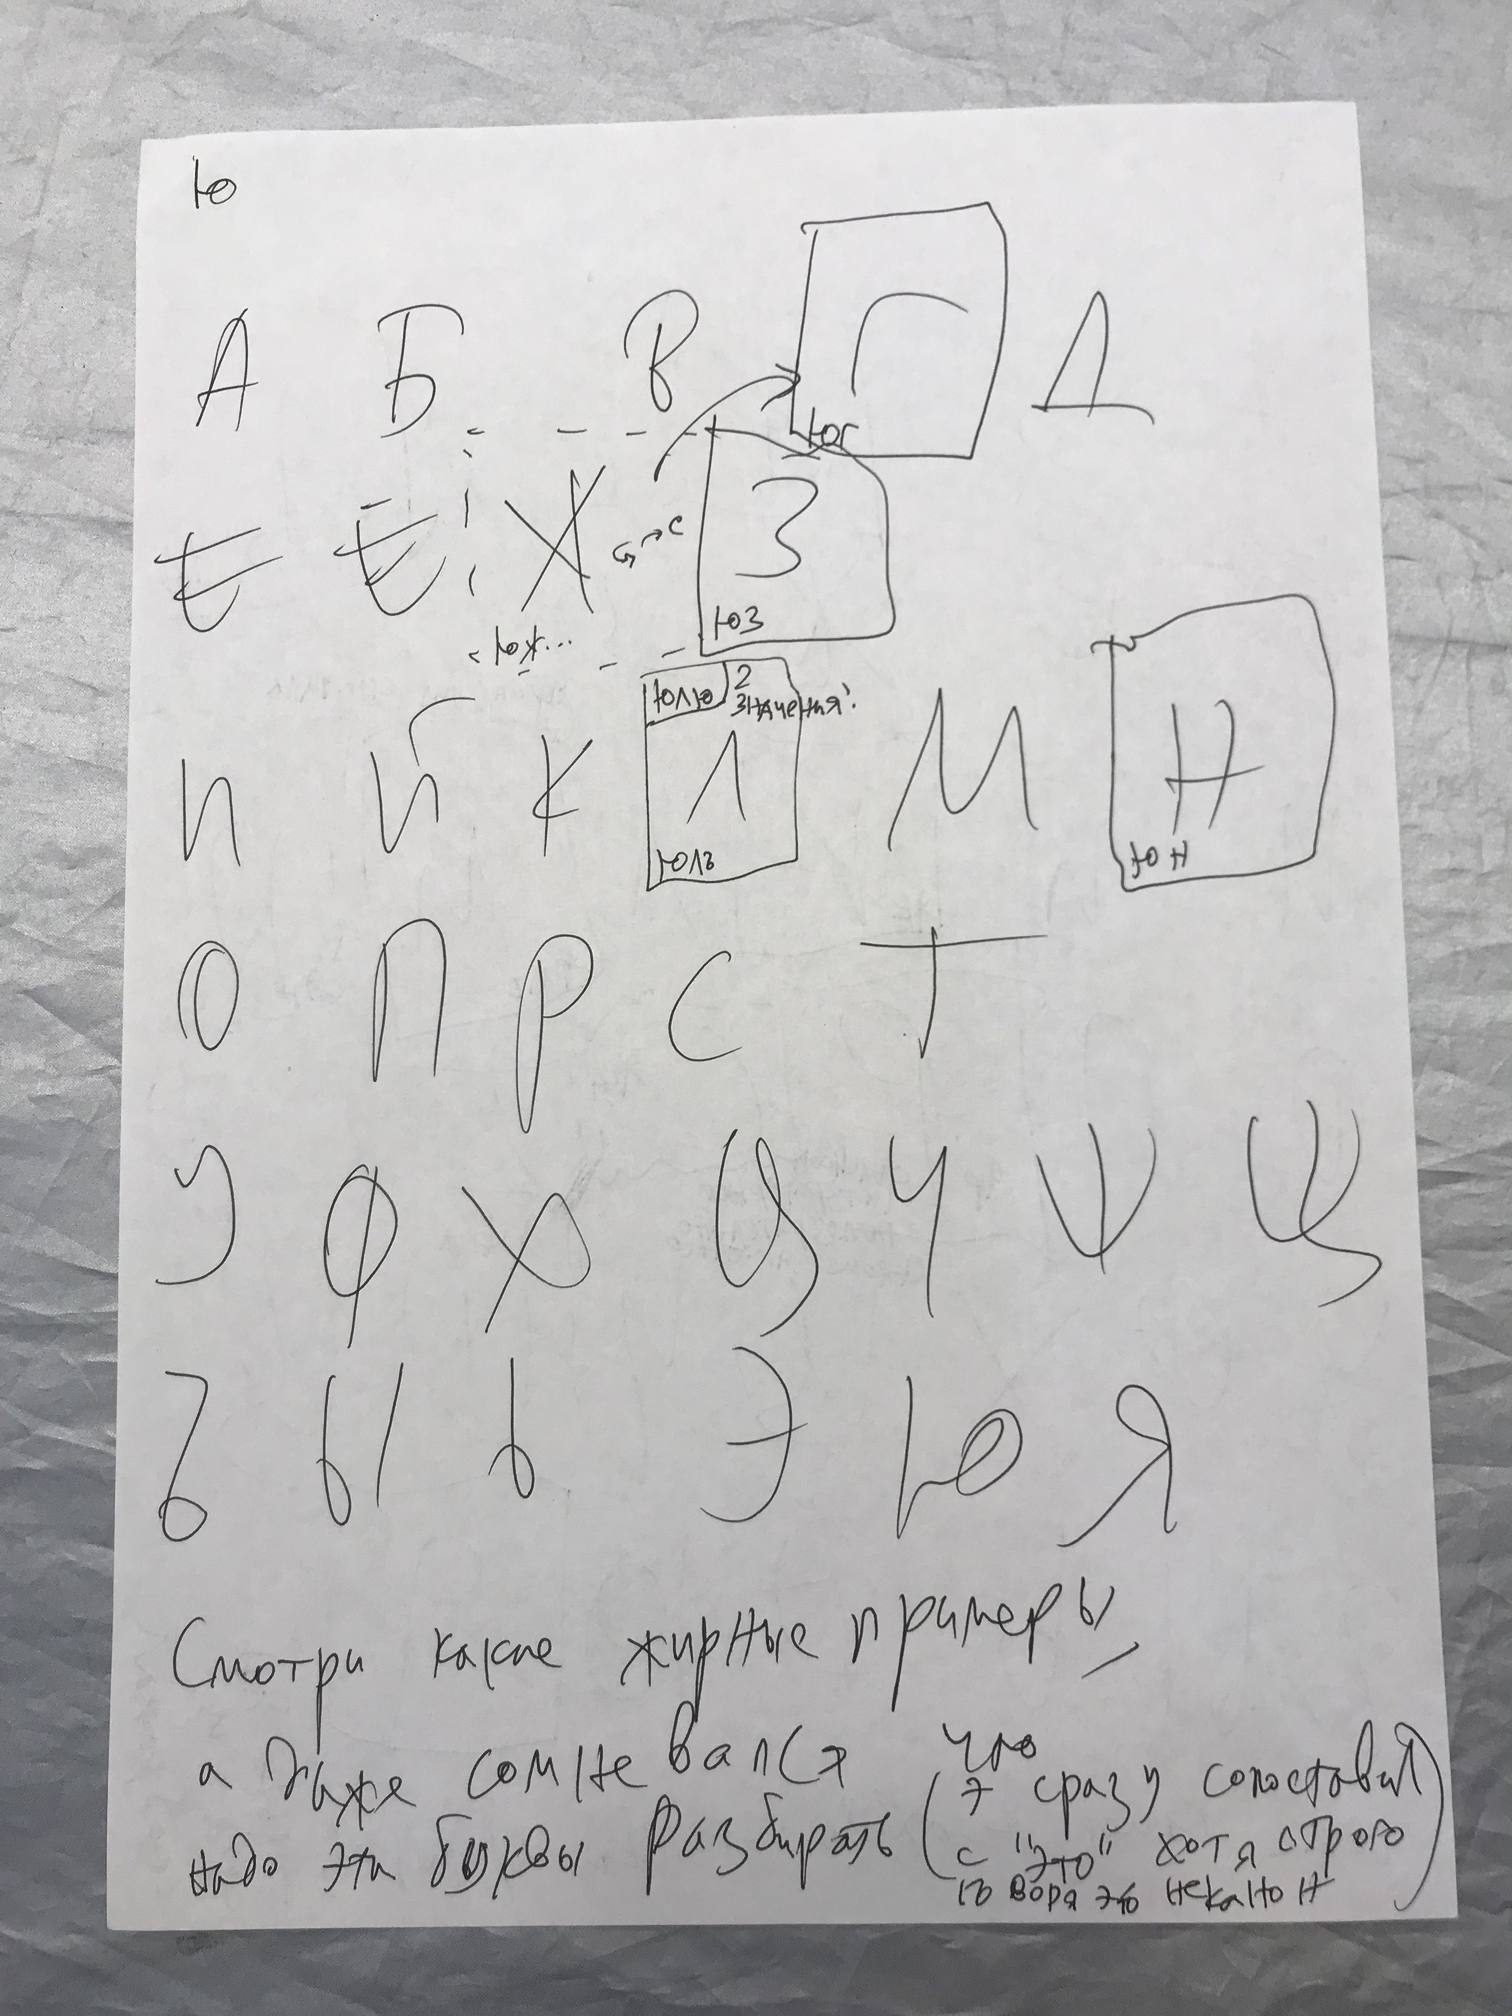 Ю
А Б В Г Д
Юг
Е Ё Ж З
Юж... Юз
Юлю 2
значения!
И Й К Л М Н
Юль Юн
О П Р С Т
У Ф Х Ц Ч Ш Щ
Ъ Ы Ь Э Ю Я
Смотри какие жирные примеры,
а даже сомневался что
надо эти буквы разбирать (Э сразу сопоставил
с "это" хотя строго
говоря это неканон)